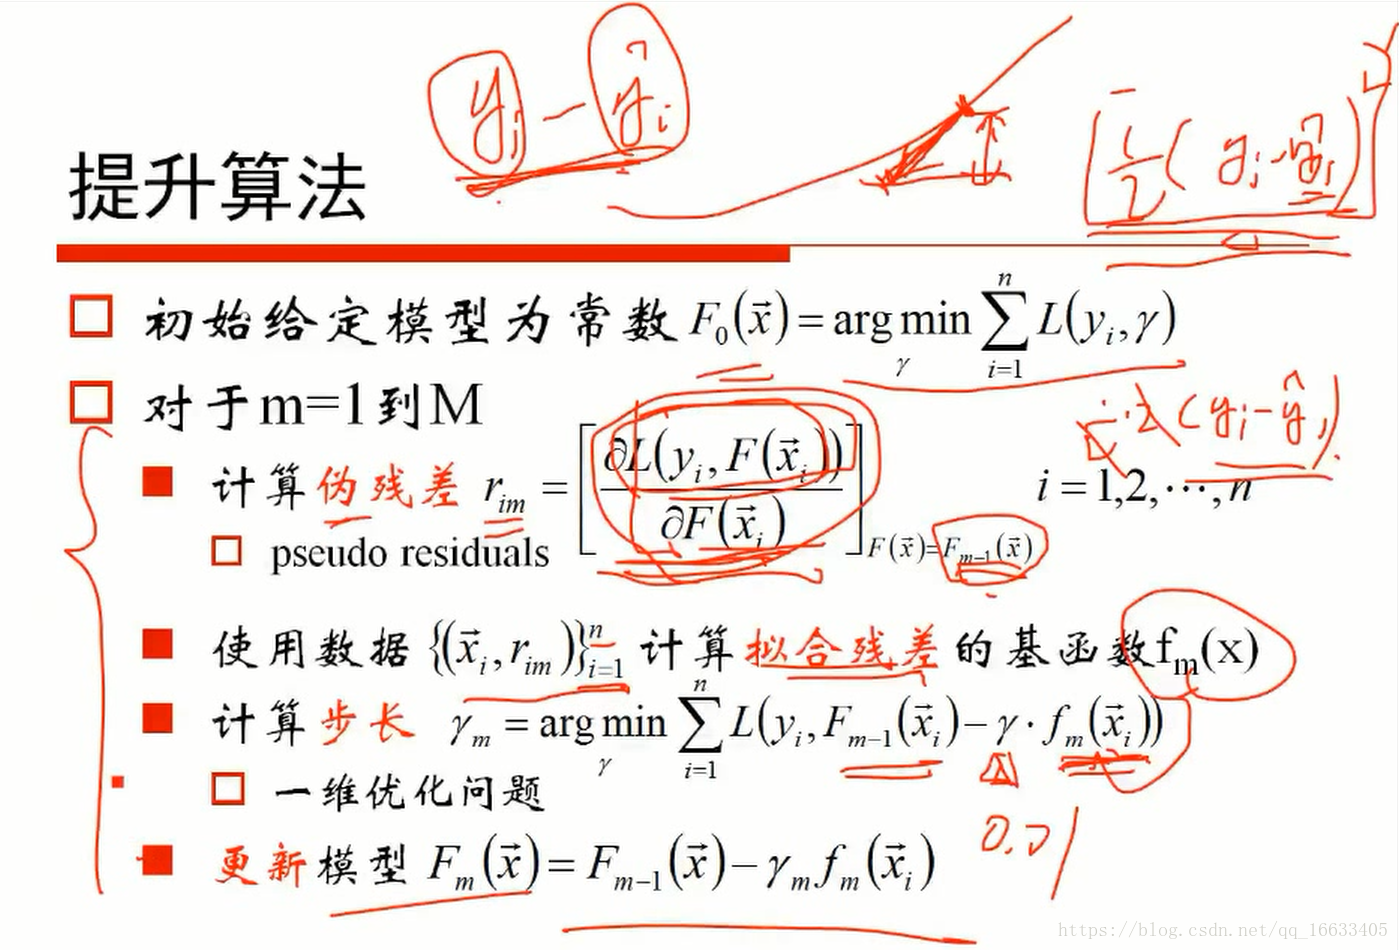 y_i - ŷ_i
1/2 (y_i - ŷ_i)
提升算法
初始给定模型为常数 F_0(x⃗) = arg min_γ ∑_{i=1}^{n} L(y_i, γ)
对于m=1到M
(y_i - ŷ_i)
计算伪残差 r_{im} = [∂L(y_i, F(x⃗_i)) / ∂F(x⃗_i)]_{F(x⃗)=F_{m-1}(x⃗)} i = 1,2,⋯,n
pseudo residuals
使用数据 {(x⃗_i, r_{im})}_{i=1}^{n} 计算拟合残差的基函数f_m(x)
计算步长 γ_m = arg min_γ ∑_{i=1}^{n} L(y_i, F_{m-1}(x⃗_i) - γ · f_m(x⃗_i))
一维优化问题
更新模型 F_m(x⃗) = F_{m-1}(x⃗) - γ_m f_m(x⃗_i)
https://blog.csdn.net/qq_16633405